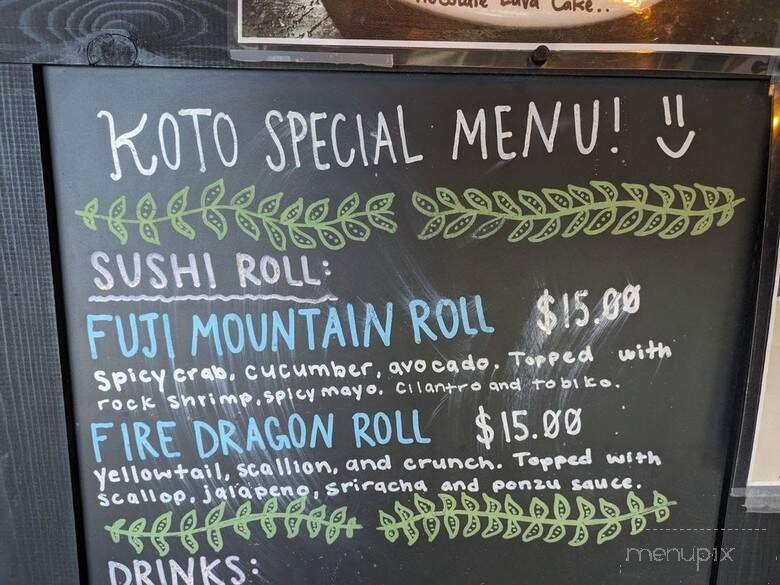 Chocolate Lava Cake..
KOTO SPECIAL MENU! =)
SUSHI ROLL:
FUJI MOUNTAIN ROLL $15.00
spicy crab, cucumber, avocado. Topped with
rock shrimp, spicy mayo, cilantro and tobiko.
FIRE DRAGON ROLL $15.00
yellowtail, scallion, and crunch. Topped with
scallop, jalapeno, sriracha and ponzu sauce.
DRINKS:
menupix